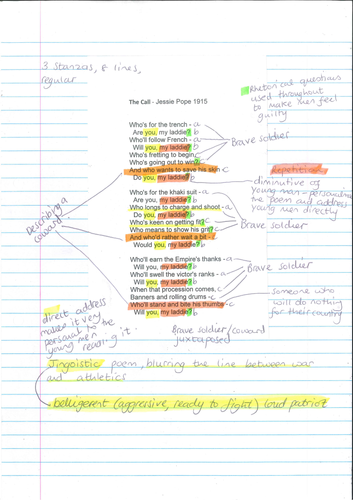 3 Stanzas, 8 lines,
regular
The Call - Jessie Pope 1915
Rhetorical questions
used throughout
to make men feel
guilty
Who's for the trench - a
Are you, my laddie? b
Who'll follow French - a
Will you, my laddie? b
Who's fretting to begin, c
Who's going out to win? c
And who wants to save his skin c
Do you, my laddie? b
Brave soldier
Repetition
diminutive of
young man - persuading
the poem and address
young men directly
Describing a
coward
Who's for the khaki suit - a
Are you, my laddie? b
Who longs to charge and shoot - a
Do you, my laddie? b
Who's keen on getting fit, c
Who means to show his grit, c
And who'd rather wait a bit - c
Would you, my laddie? b
Brave soldier
Who'll earn the Empire's thanks - a
Will you, my laddie? b
Who'll swell the victor's ranks - a
Will you, my laddie? b
When that procession comes, c
Banners and rolling drums - c
Who'll stand and bite his thumbs - c
Will you, my laddie? b
Brave soldier
someone who
will do nothing
for their country
direct address
makes it very
personal to the
young men reading it.
Brave soldier/coward
juxtaposed
Jingoistic poem, blurring the line between war
and athletics
belligerent (aggressive, ready to fight) loud patriot